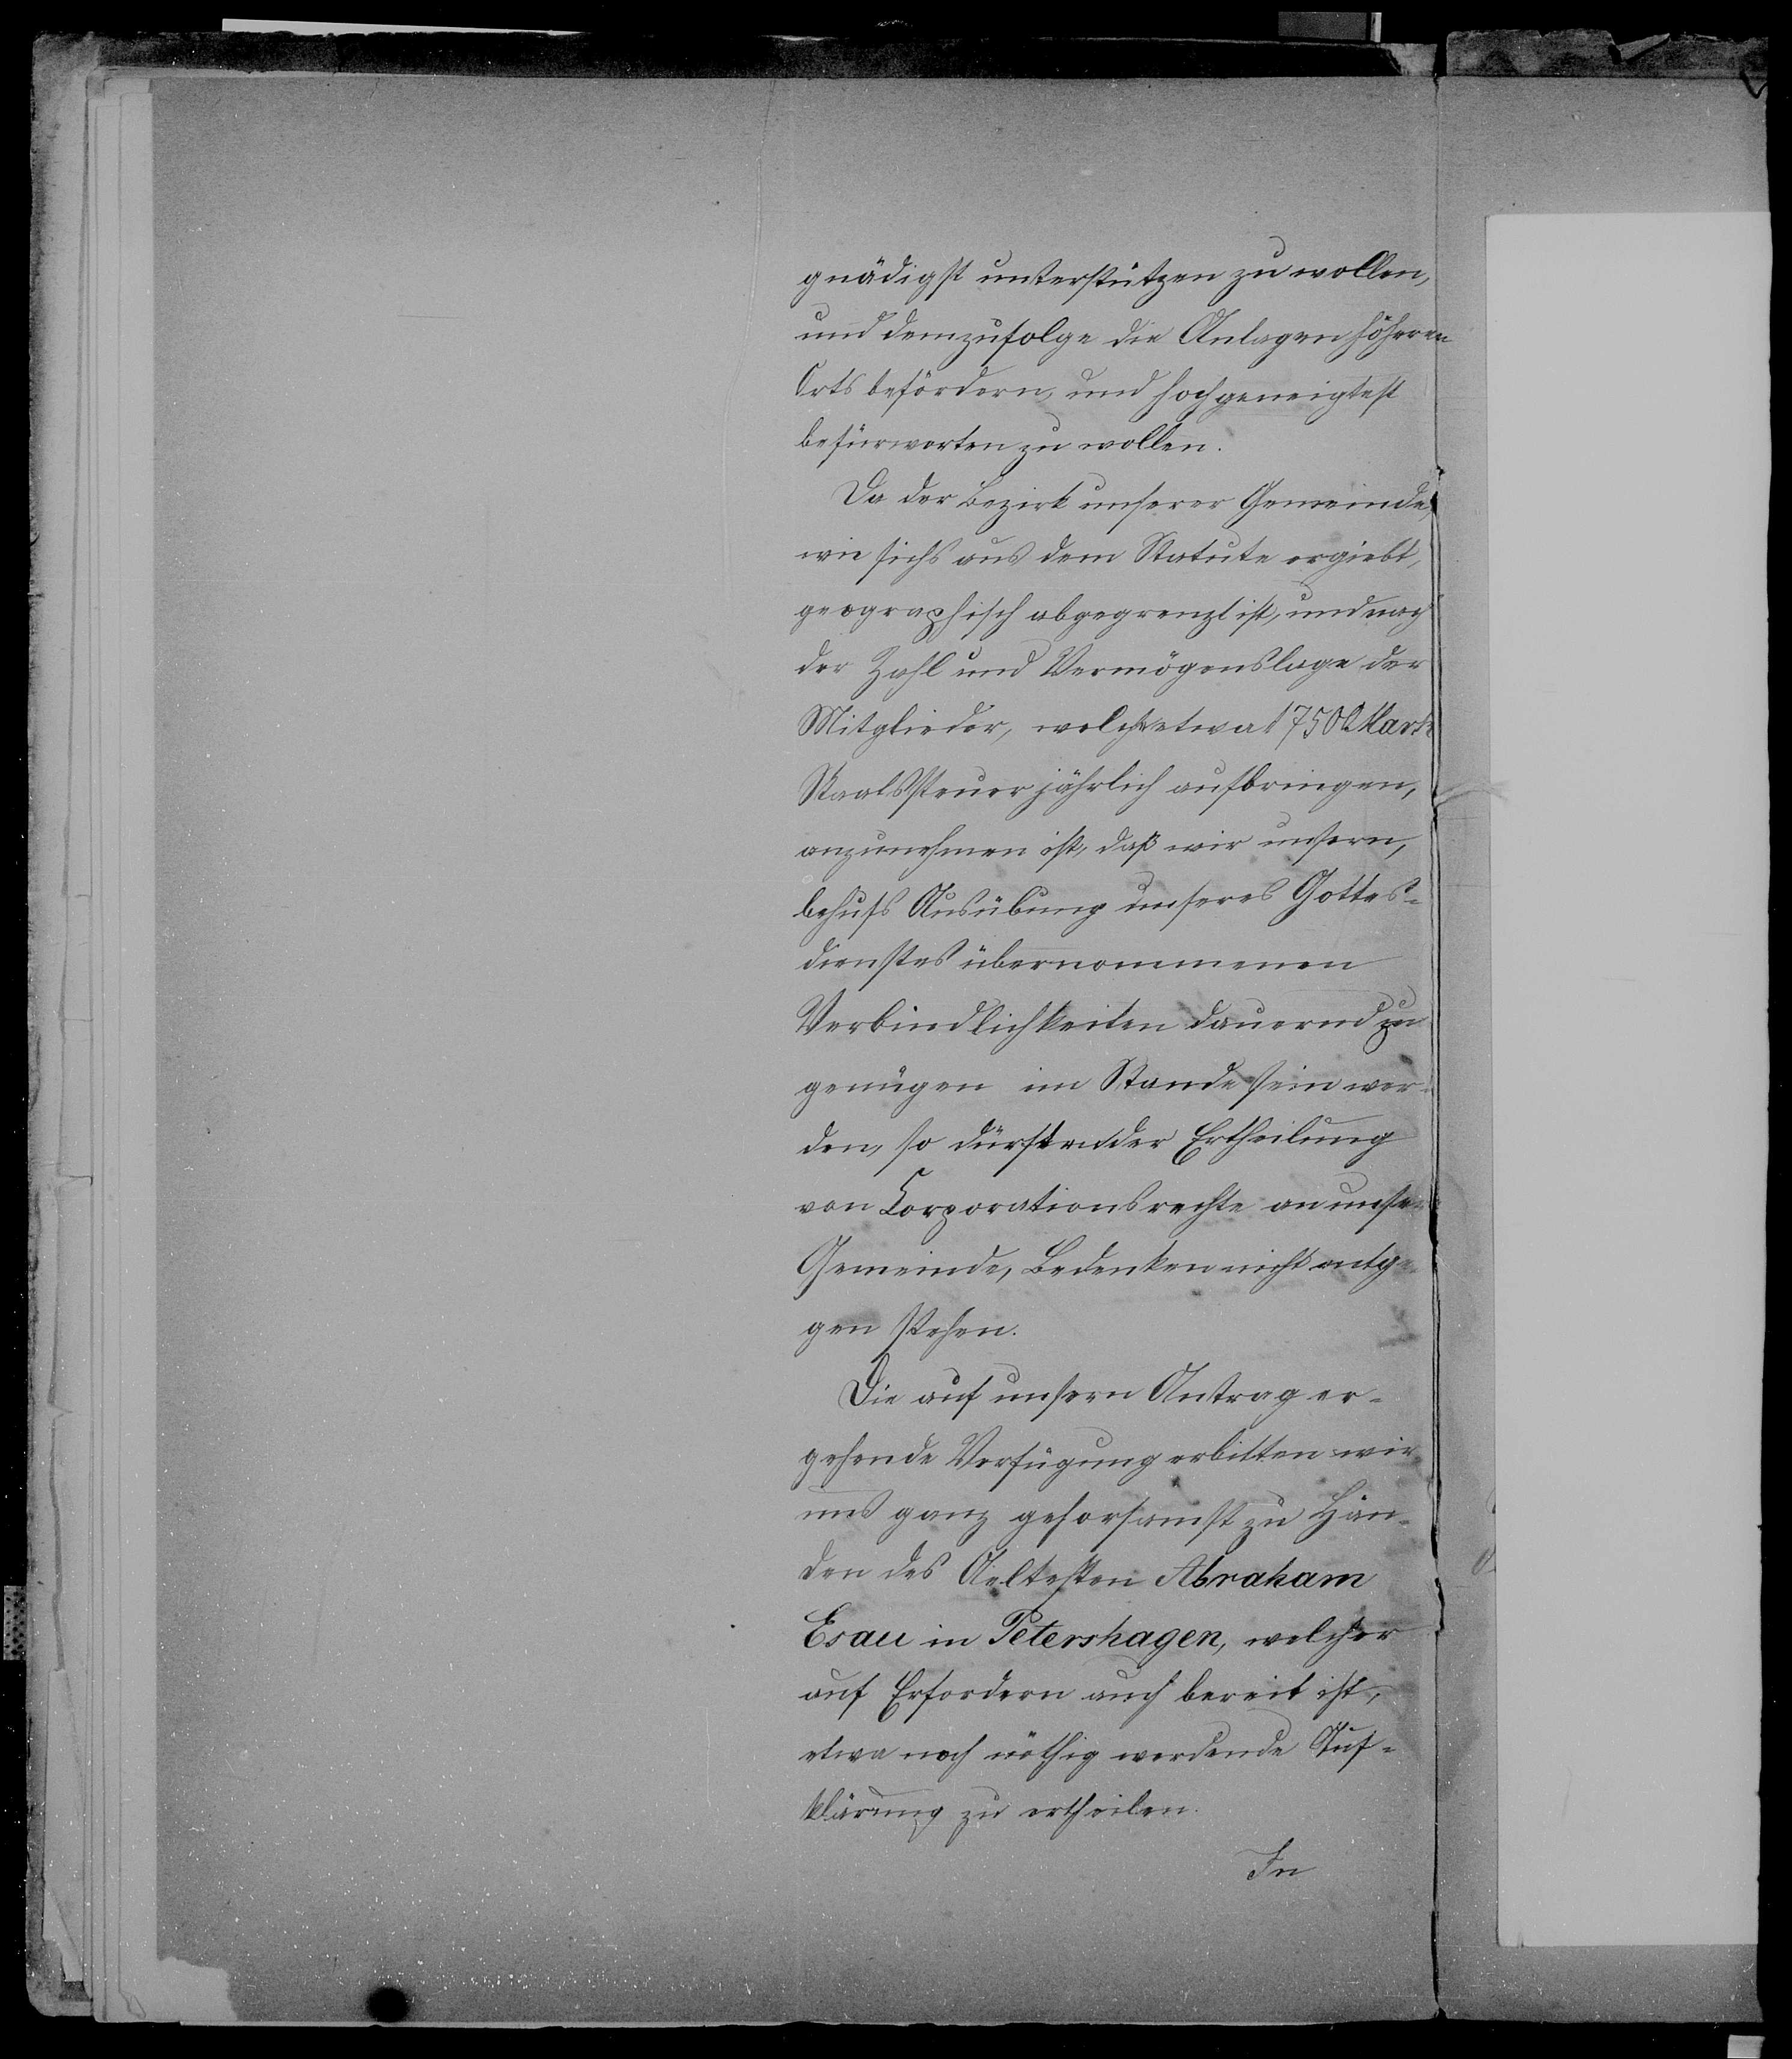 gnädigst unterstützen zu wollen,
und demzufolge die Anlagen höheren
Orts befördern, und hochgeneigtest
befürworten zu wollen.
Da der Bezirk unserer Gemeinde,
wie sichs aus dem Statute ergiebt,
geographisch abgegrenzt ist, und nach
der Zahl und Vermögenslage der
Mitglieder, welche etwa 17500 Mark
Staatssteuer jährlich aufbringen,
anzunehmen ist, daß wir unsern,
behufs Ausübung unseres Gottes-
dienstes übernommenen
Verbindlichkeiten dauernd zu
genügen im Stande sein wer-
den, so dürften der Ertheilung
von Corporationsrechte an unsere
Gemeinde, Bedenken nicht entge-
gen stehen.
Die auf unsern Antrag er-
gehende Verfügung erbitten wir
uns ganz gehorsamst zu Hän-
den des Aeltesten Abraham
Esau in Petershagen, welcher
auf Erfordern auch bereit ist,
etwa noch nöthig werdende Auf-
klärung zu ertheilen.
In